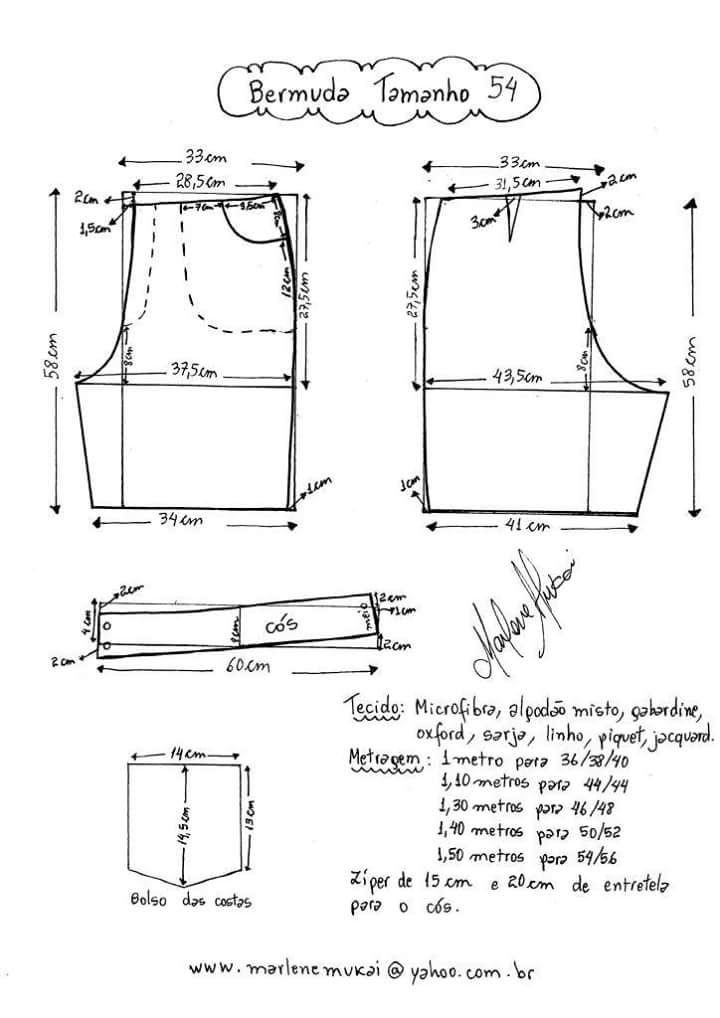 Bermuda Tamanho 54
33cm
28,5cm
2cm
1,5cm
7cm
12cm
27,5cm
58cm
8cm
37,5cm
1cm
34cm
33cm
31,5cm
2cm
2cm
3cm
27,5cm
58cm
8cm
43,5cm
1cm
41cm
2cm
4cm
2cm
cós
2cm
1cm
2cm
60cm
Marlene Mukai
Tecido: Microfibra, algodão misto, gabardine,
oxford, sarja, linho, piquet, jacquard.
Metragem: 1 metro para 36/38/40
1,10 metros para 44/44
1,30 metros para 46/48
1,40 metros para 50/52
1,50 metros para 54/56
Zíper de 15cm e 20cm de entretela
para o cós.
14cm
14,5cm
13cm
Bolso das costas
www.marlenemukai@yahoo.com.br